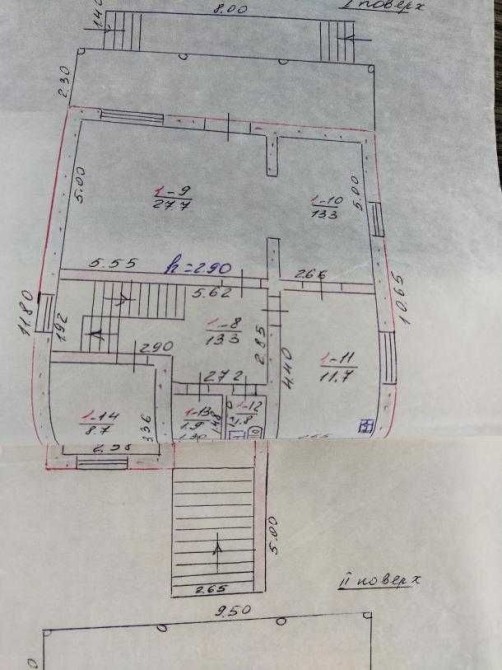 I поверх
1.40
8.00
2.30
5.00
1-9
27.7
1-10
13.3
5.00
5.55
h=2.90
2.66
5.62
11.80
1.92
1-8
13.3
2.85
10.65
4.40
1-11
11.7
2.90
2.72
1-14
8.7
3.36
1-13
1.9
1-12
1.8
1.30
2.65
5.00
II поверх
9.50